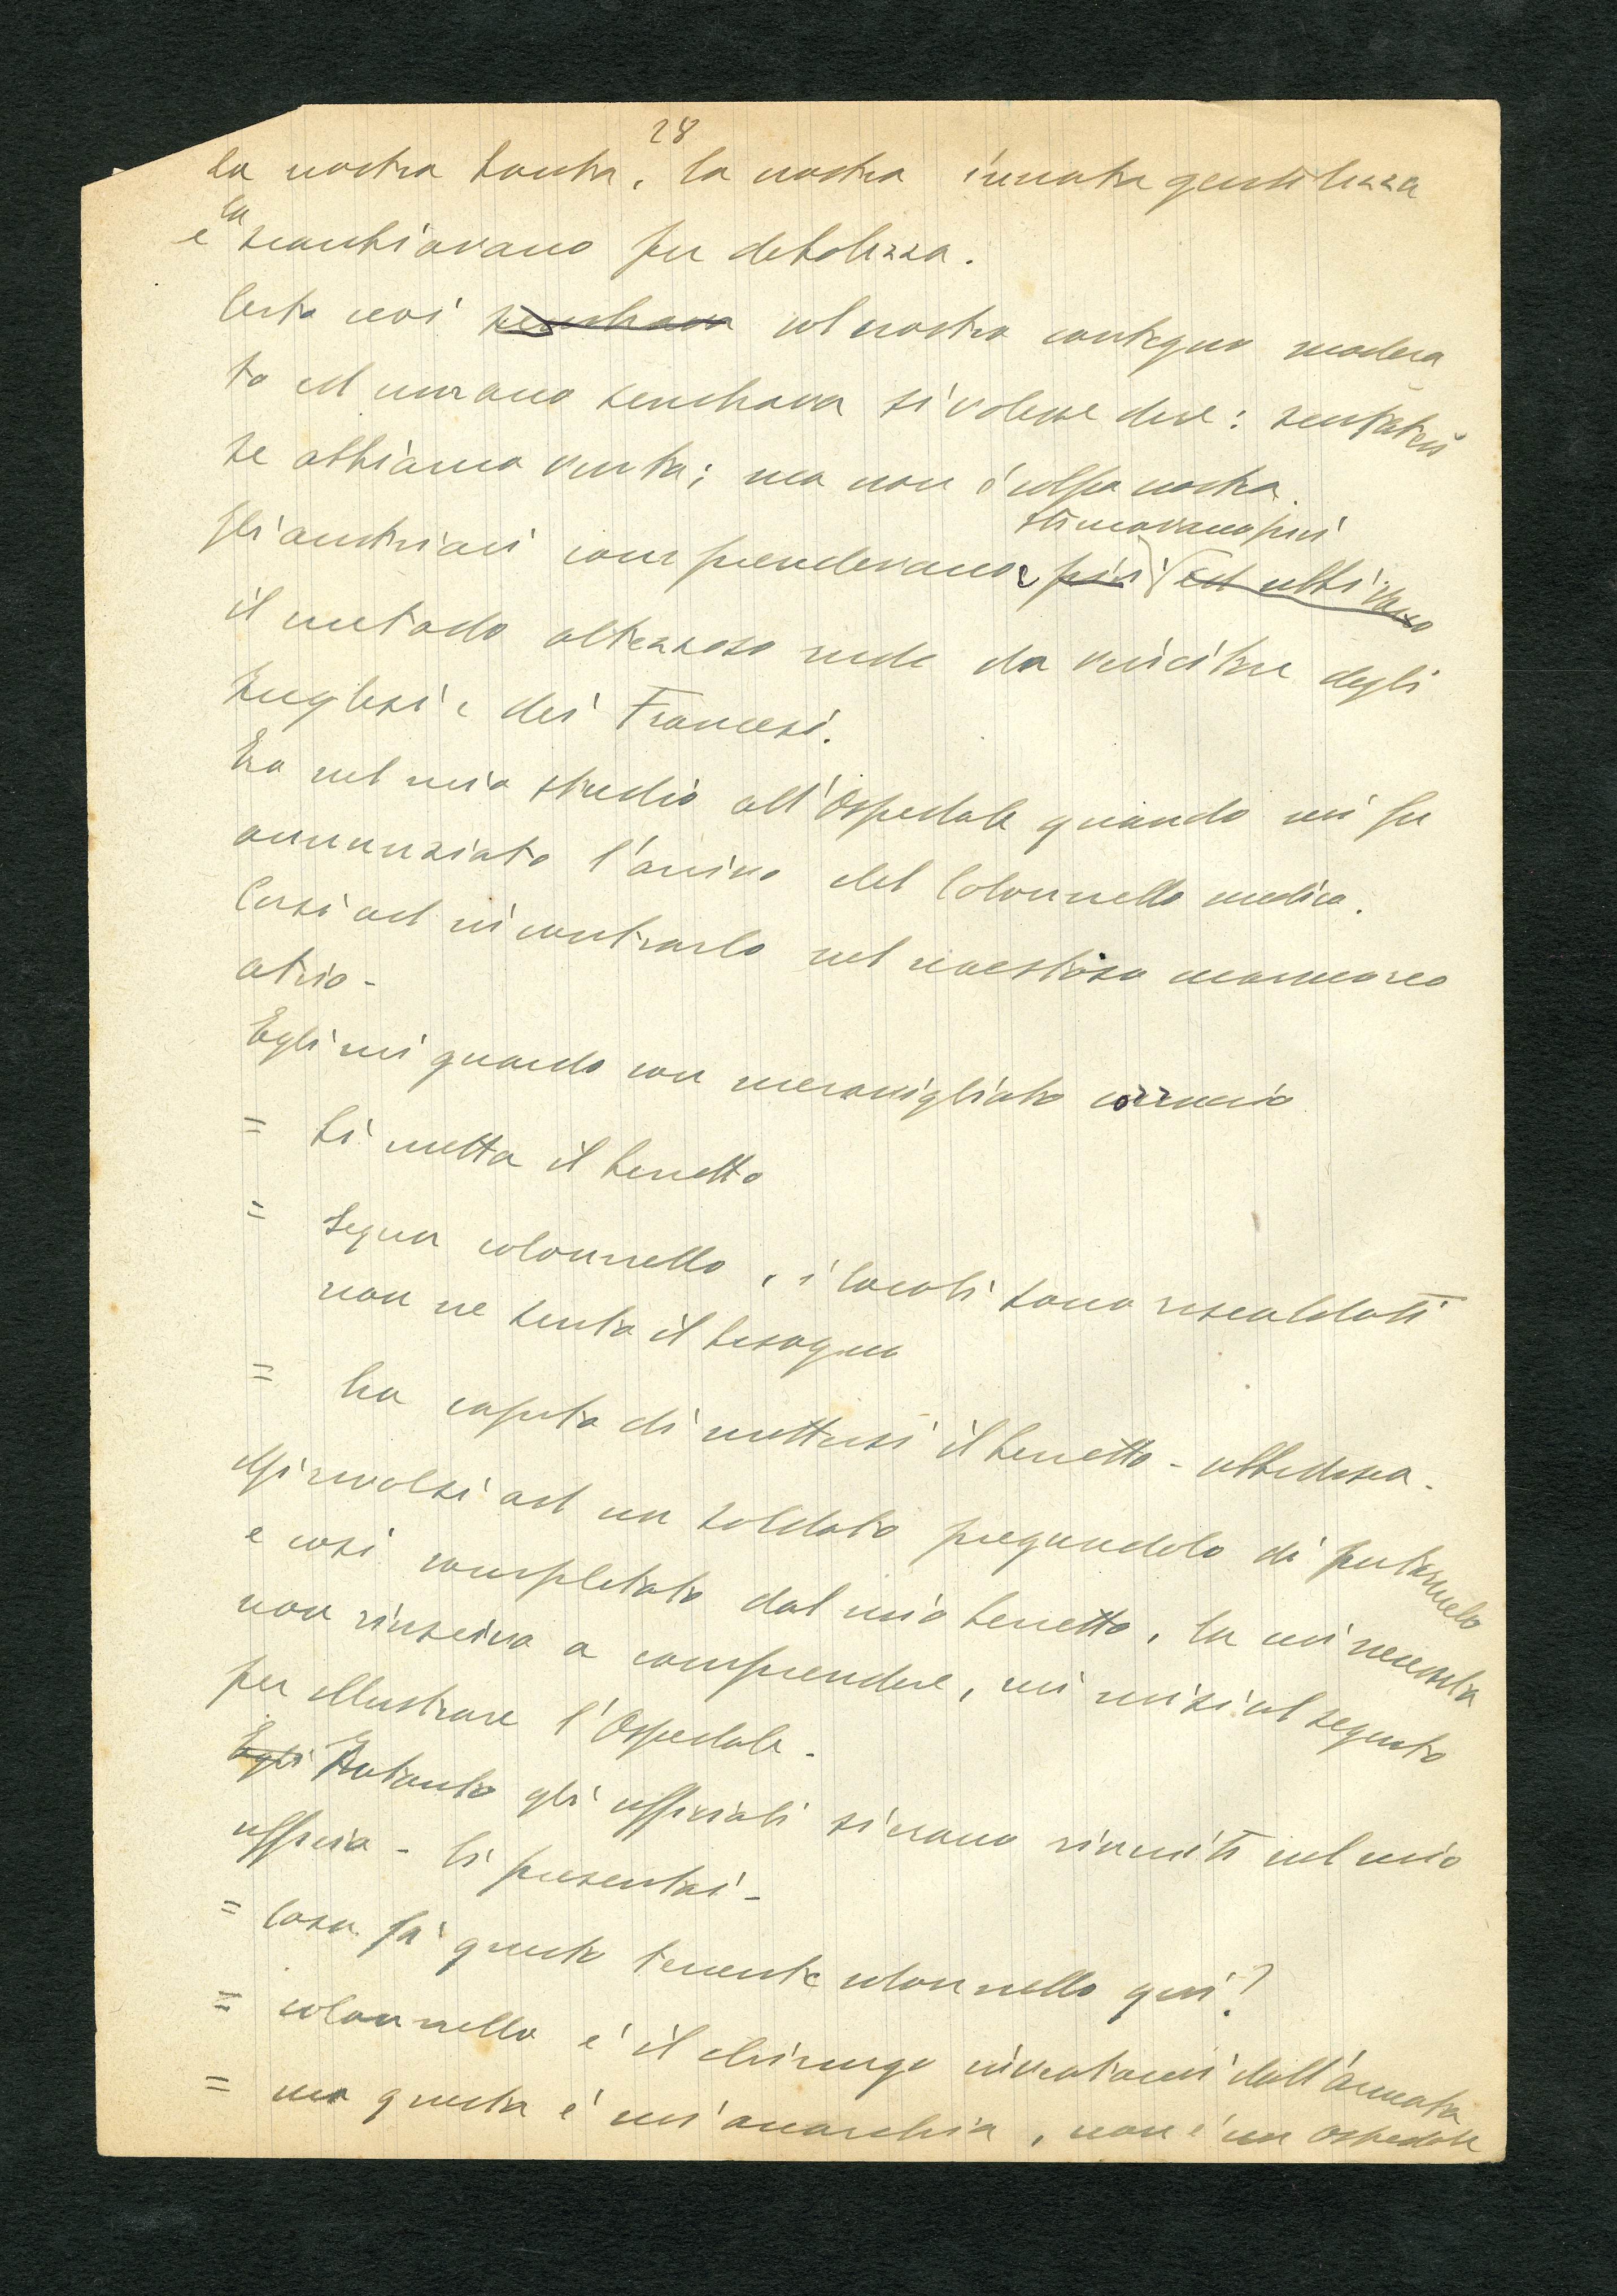 28
la nostra bontà, la nostra innata gentilezza
e la scambiavano per debolezza.
Certo noi sembrava col nostro contegno modera
to ed umano sembrava si volesse dire: scusateci
se abbiamo vinto; ma non è colpa nostra.
Gli austriaci comprendevano e più ed ubbi stimavano più
il metodo altezzoso rude da vincitore degli
Inglesi e dei Francesi.
Ero nel mio studio all'Ospedale quando mi fu
annunziato l'arrivo del Colonnello medico.
Corsi ad incontrarlo nel maestoso marmoreo
atrio -
Egli mi guardò con meravigliato corruccio
= Si metta il berretto
= Signor colonnello, i locali sono riscaldati
non ne sento il bisogno
= ha capito di mettersi il berretto - ubbidisca.
Mi rivolsi ad un soldato pregandolo di portarmelo
e così completato dal mio berretto, la cui necessità
non riusciva a comprendere, mi misi al seguito
per illustrare l'Ospedale -
Egli Intanto gli ufficiali si erano riuniti nel mio
ufficio - li presentai -
= Cosa fa questo tenente colonnello qui?
= colonnello è il chirurgo inviatomi dall'armata
= ma questa è un'anarchia, non è un ospedale